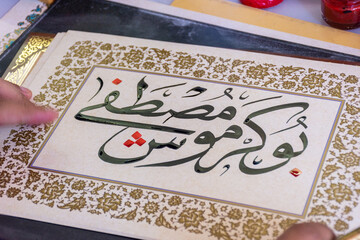 بوكرموش مصطفى